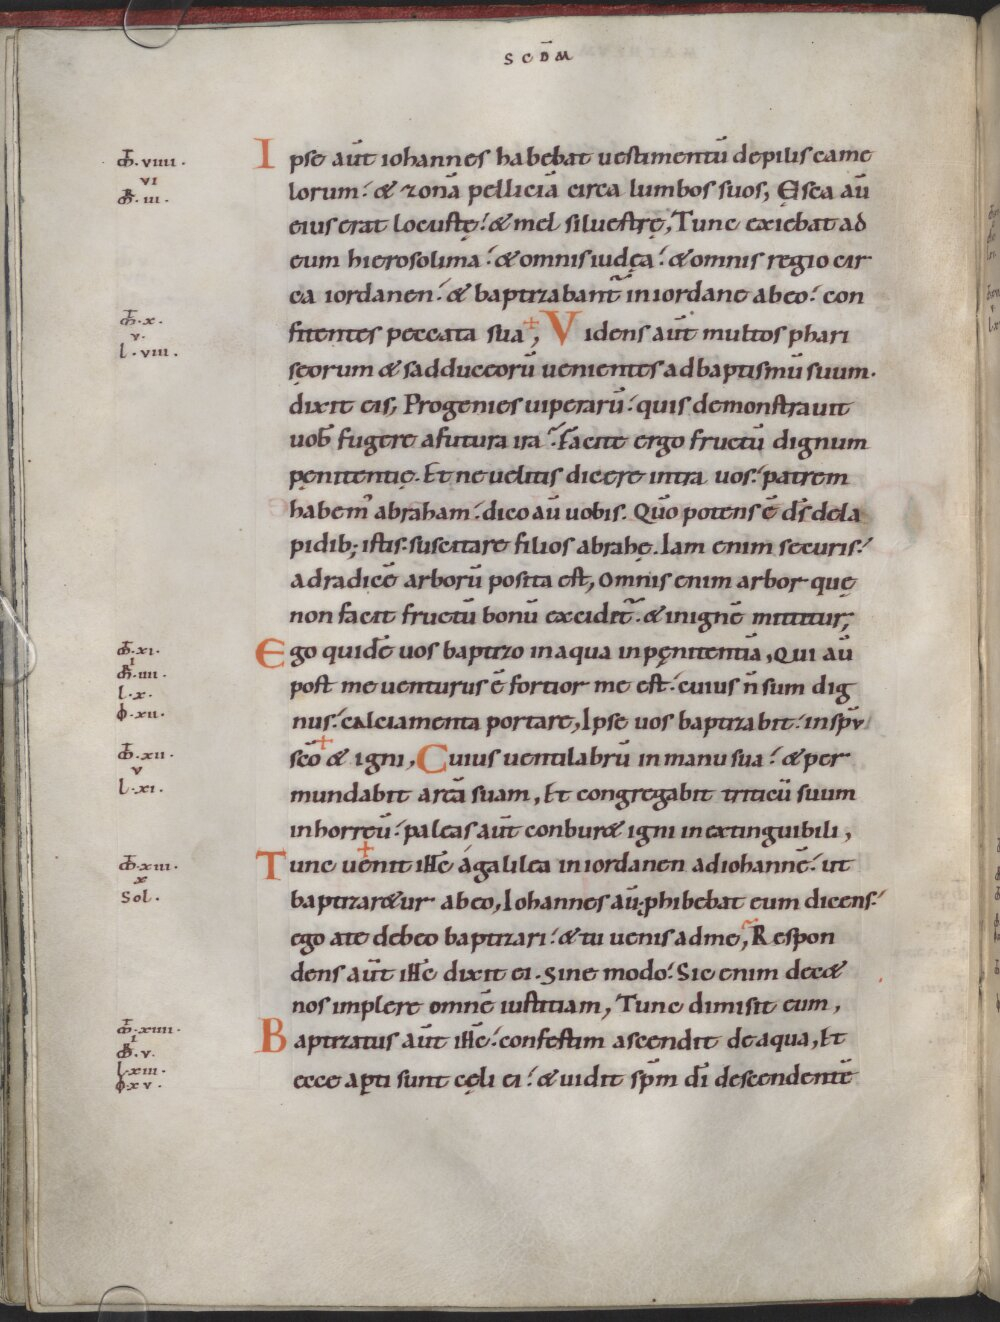 SCD̄M
Ipse aūt iohannes habebat uestimentū depilis came
lorum. & zonā pelliciā circa lumbos suos, Esca aū
eius erat locustę. & mel siluestrę, Tunc exiebat ad
eum hierosolima. & omnis iudęa. & omnis regio cir
ca iordanen. & baptizabant̄ iniordane abeo. con
fitentes peccata sua, Videns aūt multos phari
sęorum & sadduceorū uenientes adbaptismū suum.
dixit eis, Progenies uiperarū. quis demonstrauit
uob̄ fugere afutura ira. Facite ergo fructū dignum
pęnitentię. Et ne uelitis dicere intra uos. patrem
habem' abraham. dico aū uobis. Qūo potens ē d̄s dela
pidib; istis. suscitare filios abrahę. Iam enim securis.
adradicē arborū posita est, Omnis enim arbor quę
non facit fructū bonū excidit̄. & inignē mittitur;
Ego quidē uos baptizo inaqua inpęnitentiā, Qui aū
post me uenturus ē fortior me est. cuius n̄ sum dig
nus. calciamenta portare, Ipse uos baptizabit. inspū
scō & igni, Cuius uentilabrū inmanu sua. & per
mundabit arcā suam, Et congregabit triticū suum
inhorreū. paleas aūt conbur& igni inextinguibili,
Tunc uenit ihc̄ agalilea iniordanen adiohannē. ut
baptizar&ur abeo, Iohannes aū. phibebat eum dicens.
ego ate debeo baptizari. & tu uenis adme, Respon
dens aūt ihc̄ dixit ei. Sine modo. Sic enim dec&
nos implere omnē iustitiam, Tunc dimisit eum,
Baptizatus aūt ihc̄. confestim ascendit deaqua, Et
ecce apti sunt cęli ei. & uidit sp̄m dī descendentē
m̄.viiii.
vi
m̄.iii.
m̄.x.
v.
l.viii.
m̄.xi.
i
m̄.iiii.
l.x.
φ.xii.
m̄.xii.
v
l.xi.
m̄.xiii.
x
Sol.
m̄.xiiii.
i
m̄.v.
l.xiii.
φ.xv.